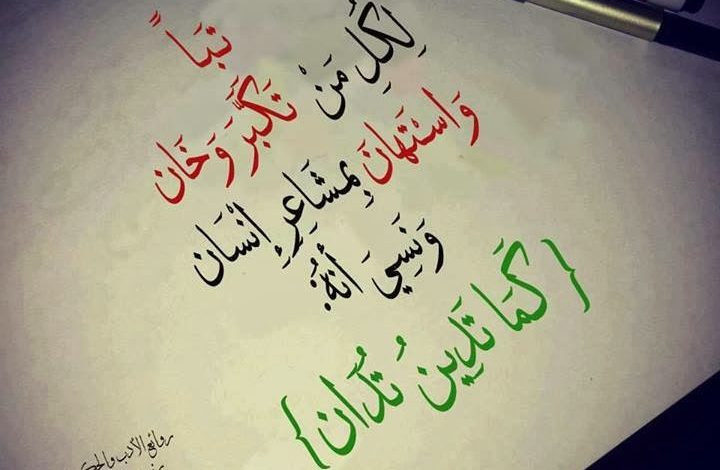 تباً
لِكُلِّ مَنْ تَكَبَّرَ وَخَان
وَاسْتَهانَ بِمشَاعِرِ إِنْسَان
وَنَسِيَ أَنَّهُ:
{كَمَا تَدِينُ تُدَان}
روائع الأدب والحكم